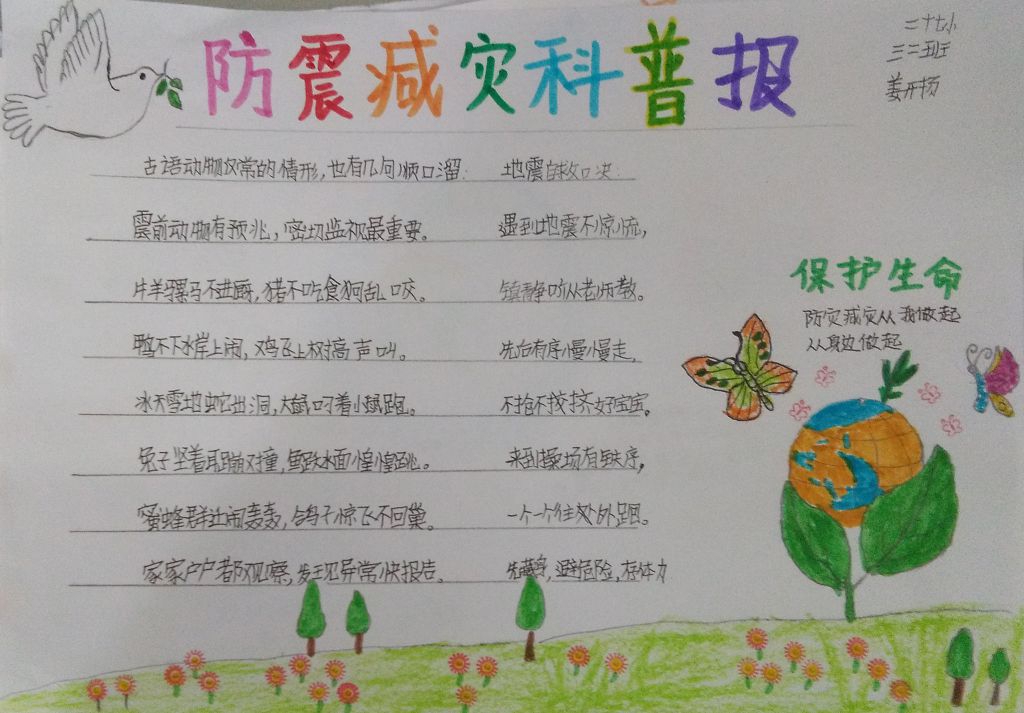 防震减灾科普报
二十七小
三三班
姜开杨
古语动物反常的情形,也有几句顺口溜:
震前动物有预兆,密切监视最重要。
牛羊骡马不进厩,猪不吃食狗乱咬。
鸭不下水岸上闹,鸡飞上树高声叫。
冰天雪地蛇出洞,大鼠叼着小鼠跑。
兔子竖着耳蹦对撞,鱼跃水面惶惶跳。
蜜蜂群迁闹轰轰,鸽子惊飞不回巢。
家家户户都观察,发现异常快报告。
地震自救口决:
遇到地震不惊慌,
镇静听从老师教。
先后有序慢慢走,
不抢不挤好宝宝。
来到操场有秩序,
一个个往外跑。
避危险,存体力
保护生命
防灾减灾从我做起
从身边做起